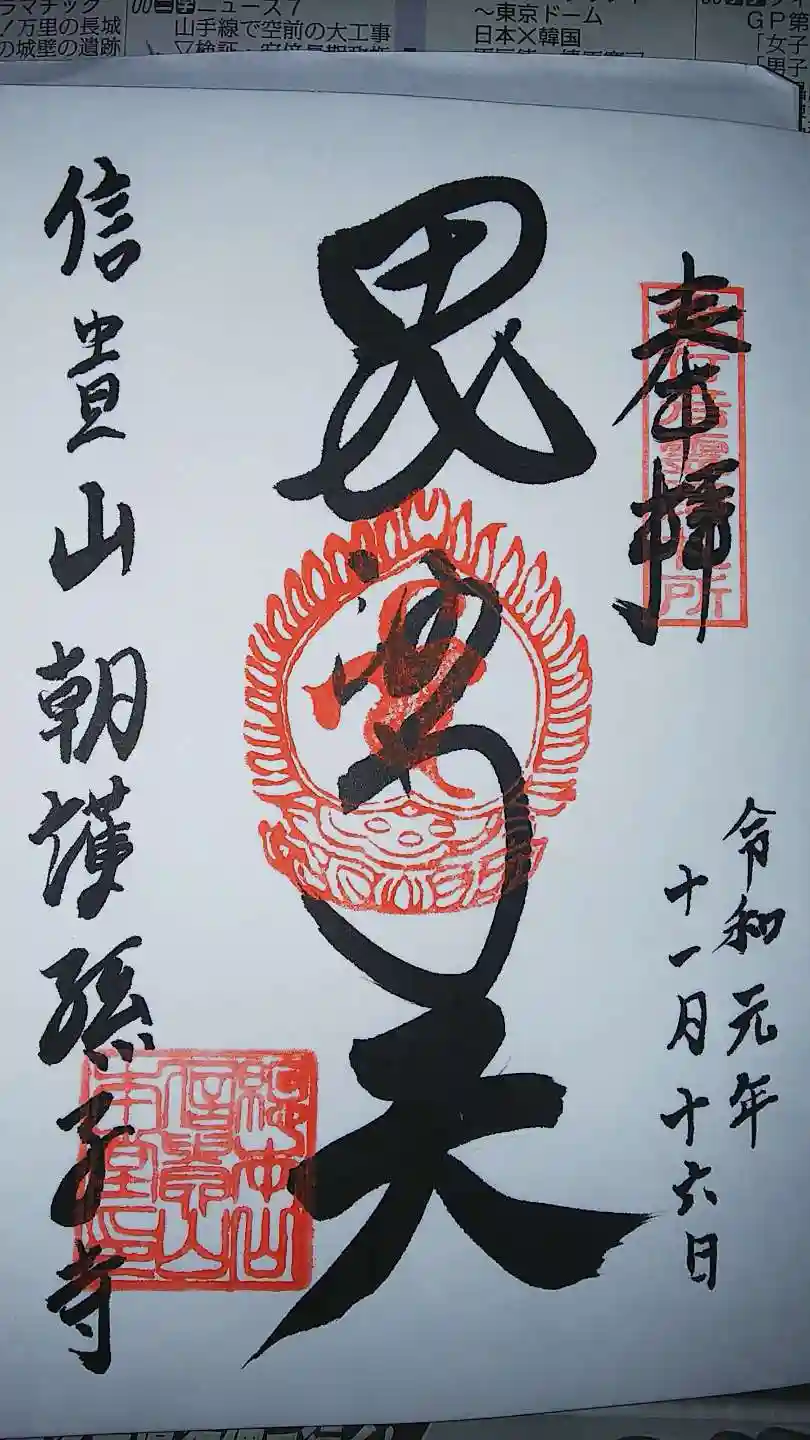 ラマチック
！万里の長城
の城壁の遺跡
00 ニュース7
山手線で空前の大工事
～東京ドーム
日本×韓国
GP第
「女子
「男子
奉拝
令和元年
十一月十六日
毘沙門天
信貴山 朝護孫子寺
総本山
信貴山
本堂印